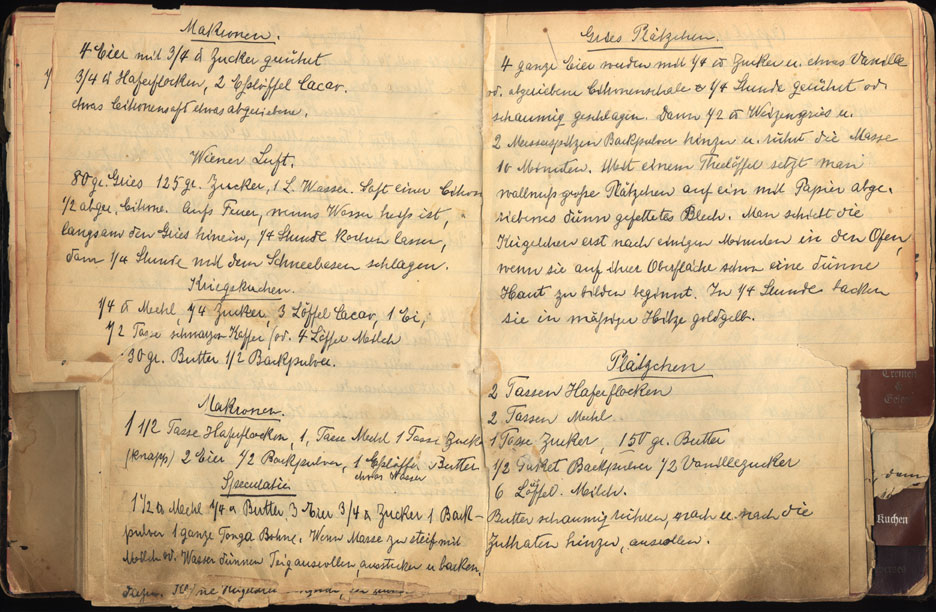 Makronen.
4 Eier mit 3/4 ℔ Zucker gerührt
3/4 ℔ Haferflocken, 2 Eßlöffel Cacao.
etwas Citronensaft etwas abgeriebene.
Wiener Luft.
80 gr. Gries 125 gr. Zucker, 1 L. Wasser. Saft einer Citron
1/2 abger. Citrone. Aufs Feuer, wenns Wasser heiß ist,
langsam den Gries hinein, 1/4 Stunde kochen lassen,
dann 1/4 Stunde mit dem Schneebesen schlagen.
Kriegskuchen.
1/4 ℔ Mechl, 1/4 Zucker, 3 Löffel Cacao, 1 Ei,
1/2 Tasse schwarzen Kaffee/od. 4 Löffel Milch
30 gr. Butter 1/2 Backpulver.
Makronen.
1 1/2 Tasse Haferflocken, 1, Tasse Mechl 1 Tasse Zuck
(knapp) 2 Eier 1/2 Backpulver, 1 Eßlöffel Butter
etwas Wasser
Speculatie
1 1/2 ℔ Mechl 1/4 ℔ Butter, 3 Eier 3/4 ℔ Zucker 1 Back-
pulver 1 ganze Tonga Bohne. Wenn Masse zu steif mit
Milch od. Wasser dünnen Teig ausrollen, ausstecken u backen,
Gries Plätzchen.
4 ganze Eier werden mit 1/4 ℔ Zucker u. etwas Vanille
od. abgeriebene Citronenschale 1/4 Stunde gerührt od.
schaumig geschlagen. Dann 1/2 ℔ Weizengries u.
2 Messerspitzen Backpulver hinzu u. rührt die Masse
10 Minuten. Mit einem Theelöffel setzt man
wallnußgroße Plätzchen auf ein mit Papier abge-
riebenes dünn gefettetes Blech. Man schiebt die
Kügelchen erst nach einigen Minuten in den Ofen,
wenn sie auf ihrer Oberfläche schon eine dünne
Haut zu bilden beginnt. In 1/4 Stunde backen
sie in mäßiger Hitze goldgelb.
Plätzchen
2 Tassen Haferflocken
2 Tassen Mechl.
1 Tasse Zucker, 150 gr. Butter
1/2 Packet Backpulver 1/2 Vanillezucker
6 Löffel Milch.
Butter schaumig rühren, nach u. nach die
Zuthaten hinzu, ausrollen.
Kuchen